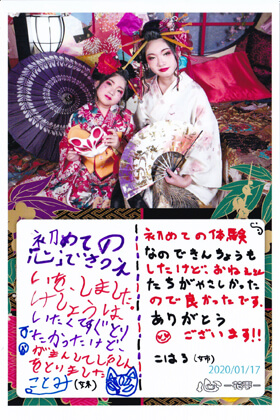 初めての
心でさつえ
いをしました
けしょうは
いたくてくすぐ
たかったけど、
がまんしてしゃしん
をとりました
ことみ
初めての体験
なのできんちょうも
したけど、おねえさん
たちがやさしかった
ので良かったです。
ありがとう
ございます!!
こはる
2020/01/17
心 ー花雫ー